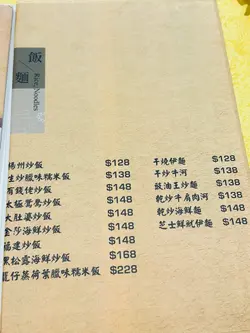 飯
麵
Rice/Noodles
揚州炒飯 $128
生炒臘味糯米飯 $138
有錢佬炒飯 $148
太極鴛鴦炒飯 $148
大肚婆炒飯 $148
金莎海鮮炒飯 $148
福建炒飯 $148
黑松露海鮮炒飯 $168
籠仔蒸荷葉臘味糯米飯 $228
干燒伊麵 $128
干炒牛河 $138
豉油王炒麵 $138
乾炒牛肩肉河 $148
乾炒海鮮麵 $148
芝士鮮魷伊麵 $148